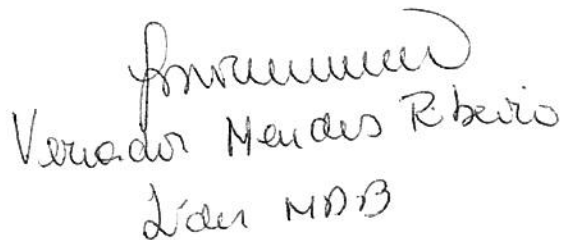 Vereador Mendes Ribeiro
Líder MDB